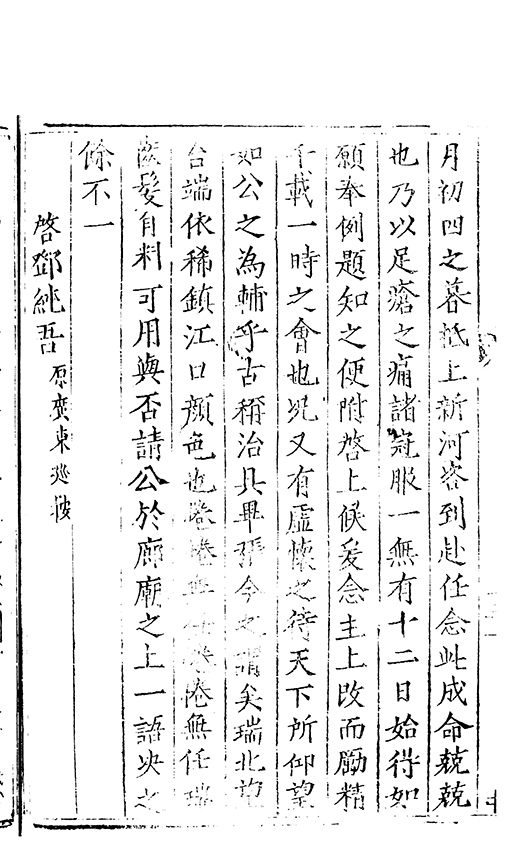 月初四之暮抵上新河咨到赴任念此成命兢兢
也乃以足瘡之痛諸冠服一無有十二日始得如
願奉例題知之便附啓上候爰念主上改而勵精
千載一時之會也况又有虛懷之待天下所仰望
如公之為輔乎古稱治具畢張今之謂矣瑞北
台端依稀鎮江口顔色也惓惓無任惓惓無任瑞
齒髮自料可用與否請公於廊廟之上一語决之
餘不一
啓鄧純吾原廣東廵按